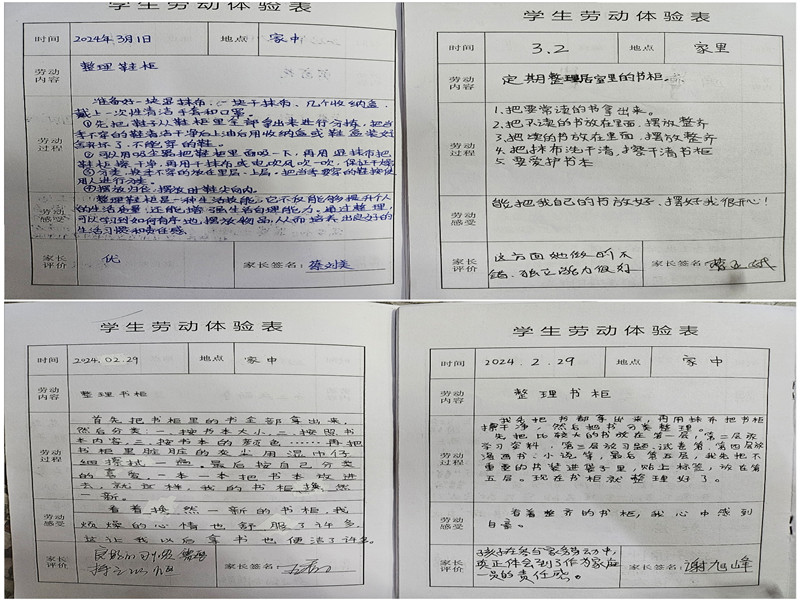 学生劳动体验表
时间 2024年3月1日 地点 家中
劳动内容 整理鞋柜
劳动过程
准备好一块湿抹布、一块干抹布、几个收纳盒,
戴上一次性清洁手套和口罩。
①先把鞋子从鞋柜里全部拿出来进行分拣,把当
季不穿的鞋清洁干净后上油后用收纳盒或鞋盒装好
不能穿的鞋。
进行分类。
④摆放归位,摆放时鞋尖向内。
劳动感受
整理鞋柜是一种生活技能,它不仅能够提升个人
的生活质量,还能增强生活自理能力。通过整理,
可以学习到如何有序地摆放物品,从而培养出良好的
生活习惯和责任感。
家长评价 优 家长签名:
学生劳动体验表
时间 3.2 地点 家里
劳动内容 定期整理居室里的书柜。
劳动过程
1.把要常读的书拿出来。
2.把不读的书放在里面,摆放整齐
3.把读的书放在里面,摆放整齐
4.把抹布洗干清,擦干清书柜
5.要爱护书柜
劳动感受
能把我自己的书放好,摆好我很开心!
家长评价
这方面她做的不
错,独立能力很好
家长签名:
学生劳动体验表
时间 2024.02.29 地点 家中
劳动内容 整理书柜
劳动过程
首先把书柜里的书全部拿出来,
然后分类:一、按书本大小,二、按照书
本内容,三、按书本的颜色……再把
书柜里脏脏的灰尘用湿巾仔
细擦拭一遍。最后按自己分类
的喜爱,一本一本把书本放进
去,就这样,我的书柜焕然
一新。
劳动感受
看着焕然一新的书柜,我
烦燥的心情也舒服了许多,
这让我以后拿书也便洁了许多。
家长评价
家长签名:
学生劳动体验表
时间 2024.2.29 地点 家中
劳动内容 整理书柜
劳动过程
我先把书都拿出来,再用抹布把书柜
擦干净,然后把书分类整理。
先把比较大的书放在第一层,第二层放
学习资料,第三层放习题、试卷等,第四层放
漫画书、小说等,最后第五层,我先把不
重要的书装进袋子里,贴上标签,放在第
五层。现在书柜就整理好了。
劳动感受
看着整齐的书柜,我心中感到
自豪。
家长评价
孩子在参与家务劳动中,
真正体会到了作为家庭
一员的责任感。
家长签名:谢旭峰